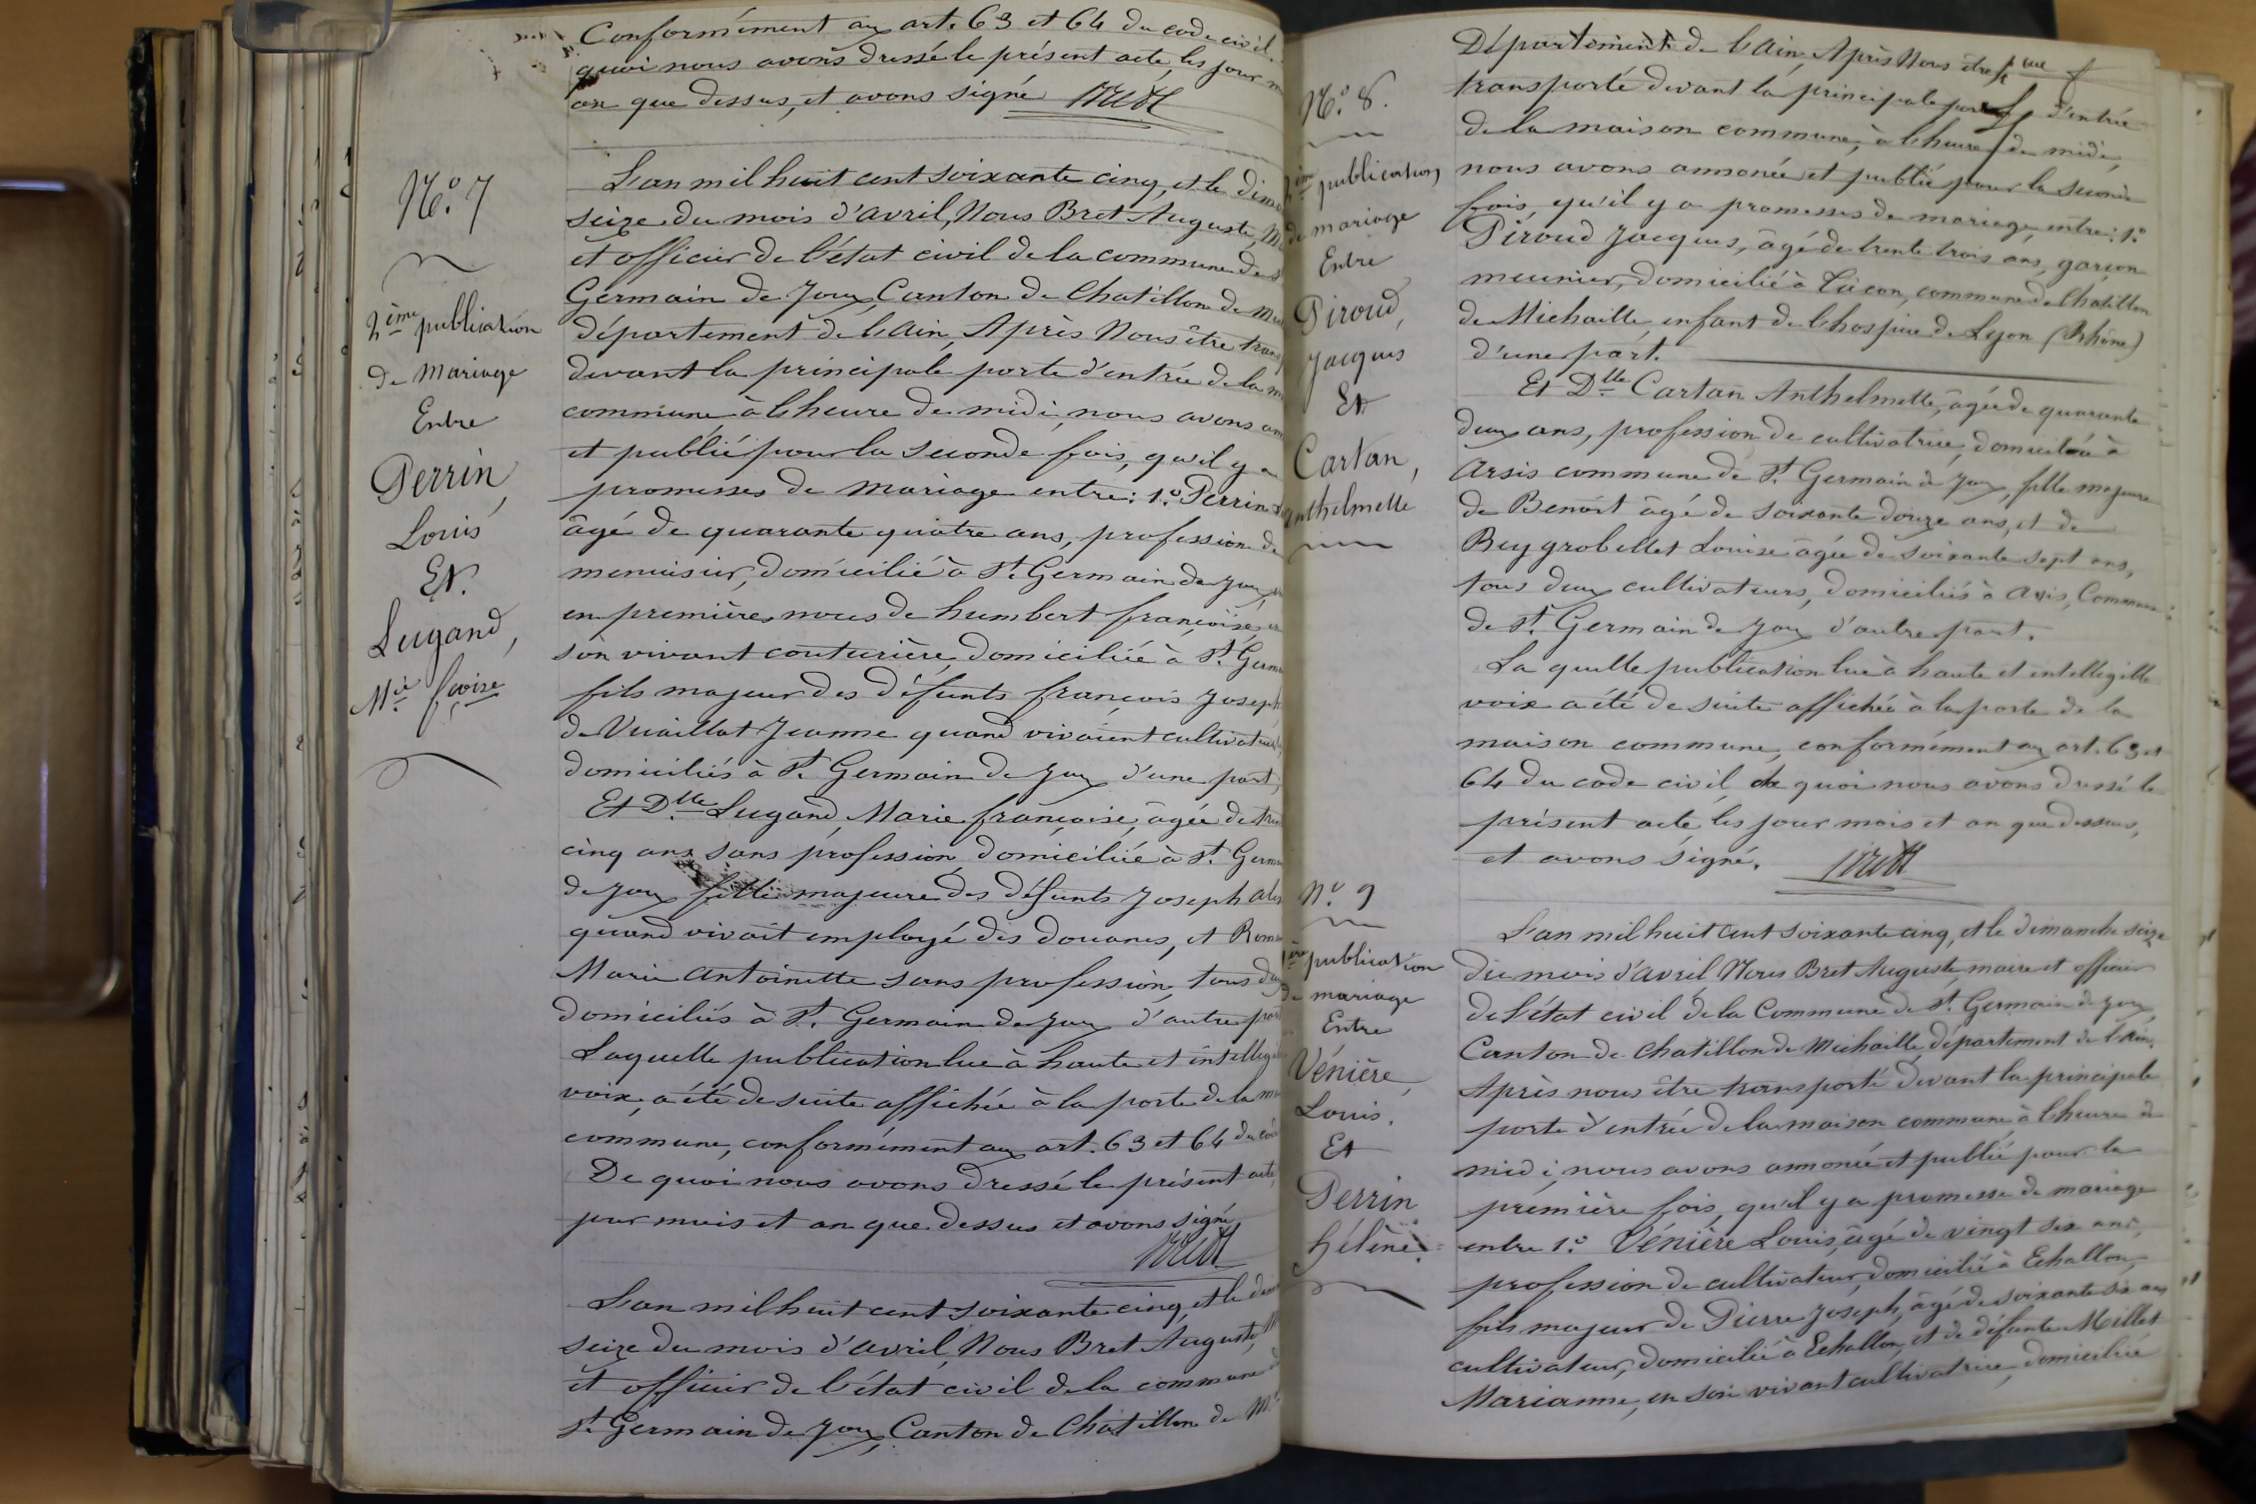 Conformément aux art. 63 et 64 du code civil.
quoi nous avons dressé le présent acte, les jour m
an que dessus, et avons signé Bret
N.º 7
2ème publication
de Mariage
Entre
Perrin,
Louis
Et.
Lugand,
Mie fçoise
L'an mil huit cent soixante cinq, et le dima
seize du mois d'avril, Nous Bret Auguste, M
et officier de l'état civil de la commune de S
Germain de Joux, Canton de Chatillon de Mi
département de l'Ain, Après Nous être trans
devant la principale porte d'entrée de la m
commune, à l'heure de midi, nous avons an
et publié pour la seconde fois, qu'il y a
promesses de mariage entre: 1.º Perrin
âgé de quarante quatre ans, profession de
menuisier, domicilié à St. Germain de Joux,
en premières noces de humbert françoise, en
son vivant couturière, domiciliée à St. Germ
fils majeur des défunts françois Joseph,
de Vuaillat Jeanne quand vivaient cultivateurs,
domiciliés à St. Germain de Joux d'une part,
Et Dlle Lugand, Marie françoise, âgée de tren
cinq ans, sans profession, domiciliée à St. Germ
de Joux fille majeure des défunts Joseph
quand vivait employé des douanes, et
Marie Antoinette sans profession, tous deux
domiciliés à St. Germain de Joux d'autre part
Laquelle publication lue à haute et intelligi
voix, a été de suite affichée à la porte de la m
commune, conformément aux art. 63 et 64 du code
De quoi nous avons dressé le présent acte,
jour mois et an que dessus et avons signé
Bret
L'an mil huit cent soixante cinq, et le dim
seize du mois d'avril, Nous Bret Auguste, M
et officier de l'état civil de la commune de
St. Germain de Joux, Canton de Chatillon de Mi
N.º 8.
2ème publication
de mariage
Entre
Piroud,
Jacques
Et
Cartan,
Anthelmette
Département de l'Ain, Après Nous être
transporté devant la principale porte d'entrée
de la maison commune, à l'heure de midi,
nous avons annoncé et publié pour la seconde
fois, qu'il y a promesses de mariage entre: 1.º
Piroud Jacques, âgé de trente trois ans, garçon
meunier, domicilié à Tâcon, commune de Chatillon
de Michaille, enfant de l'hospice de Lyon (Rhône)
d'une part.
Et Dlle Cartan Anthelmette, âgée de quarante
deux ans, profession de cultivatrice, domiciliée à
Arsis commune de St. Germain de Joux, fille majeure
de Benoît âgé de soixante douze ans, et de
Reygrobellet Louise âgée de soixante sept ans,
tous deux cultivateurs, domiciliés à Arsis, Commune
de St. Germain de Joux d'autre part.
La quelle publication lue à haute et intellegille
voix a été de suite affichée à la porte de la
maison commune, conformément aux art. 63 et
64 du code civil de quoi nous avons dressé le
présent acte les jour mois et an que dessus,
et avons signé. Bret
N.º 9
1ère publication
de mariage
Entre
Vénière,
Louis.
Et
Perrin
hélène.
L'an mil huit cent soixante cinq, et le dimanche seize
du mois d'avril Nous Bret Auguste, maire et officier
de l'état civil de la Commune de St. Germain de Joux,
Canton de Chatillon de Michaille, département de l'Ain.
Après nous être transporté devant la principale
porte d'entrée de la maison commune à l'heure de
midi, nous avons annoncé et publié pour la
première fois, qu'il y a promesse de mariage
entre 1.º Vénière Louis, âgé de vingt six ans,
profession de cultivateur, domicilié à Echallon,
fils majeur de Pierre Joseph, âgé de soixante six ans
cultivateur, domicilié à Echallon, et de défunte Millet
Marianne, en son vivant cultivatrice, domiciliée